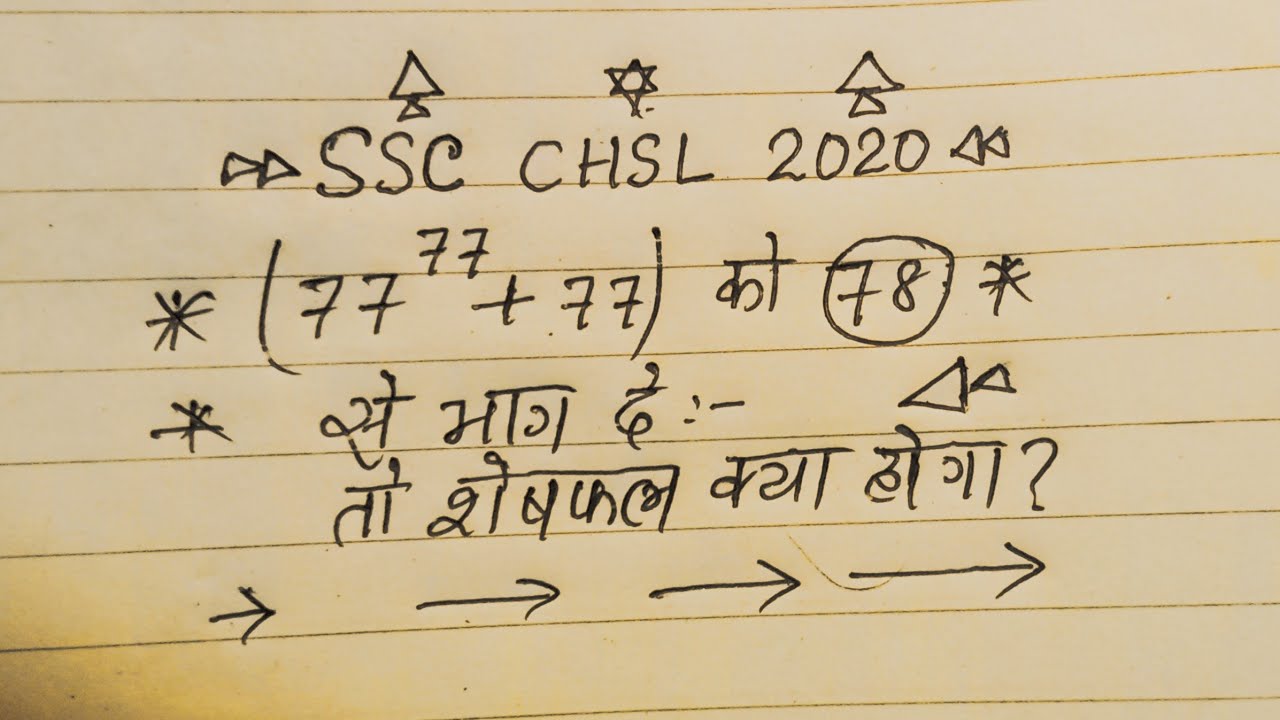 SSC CHSL 2020
* (77⁷⁷ + 77) को 78 *
* से भाग दे :-
तो शेषफल क्या होगा?